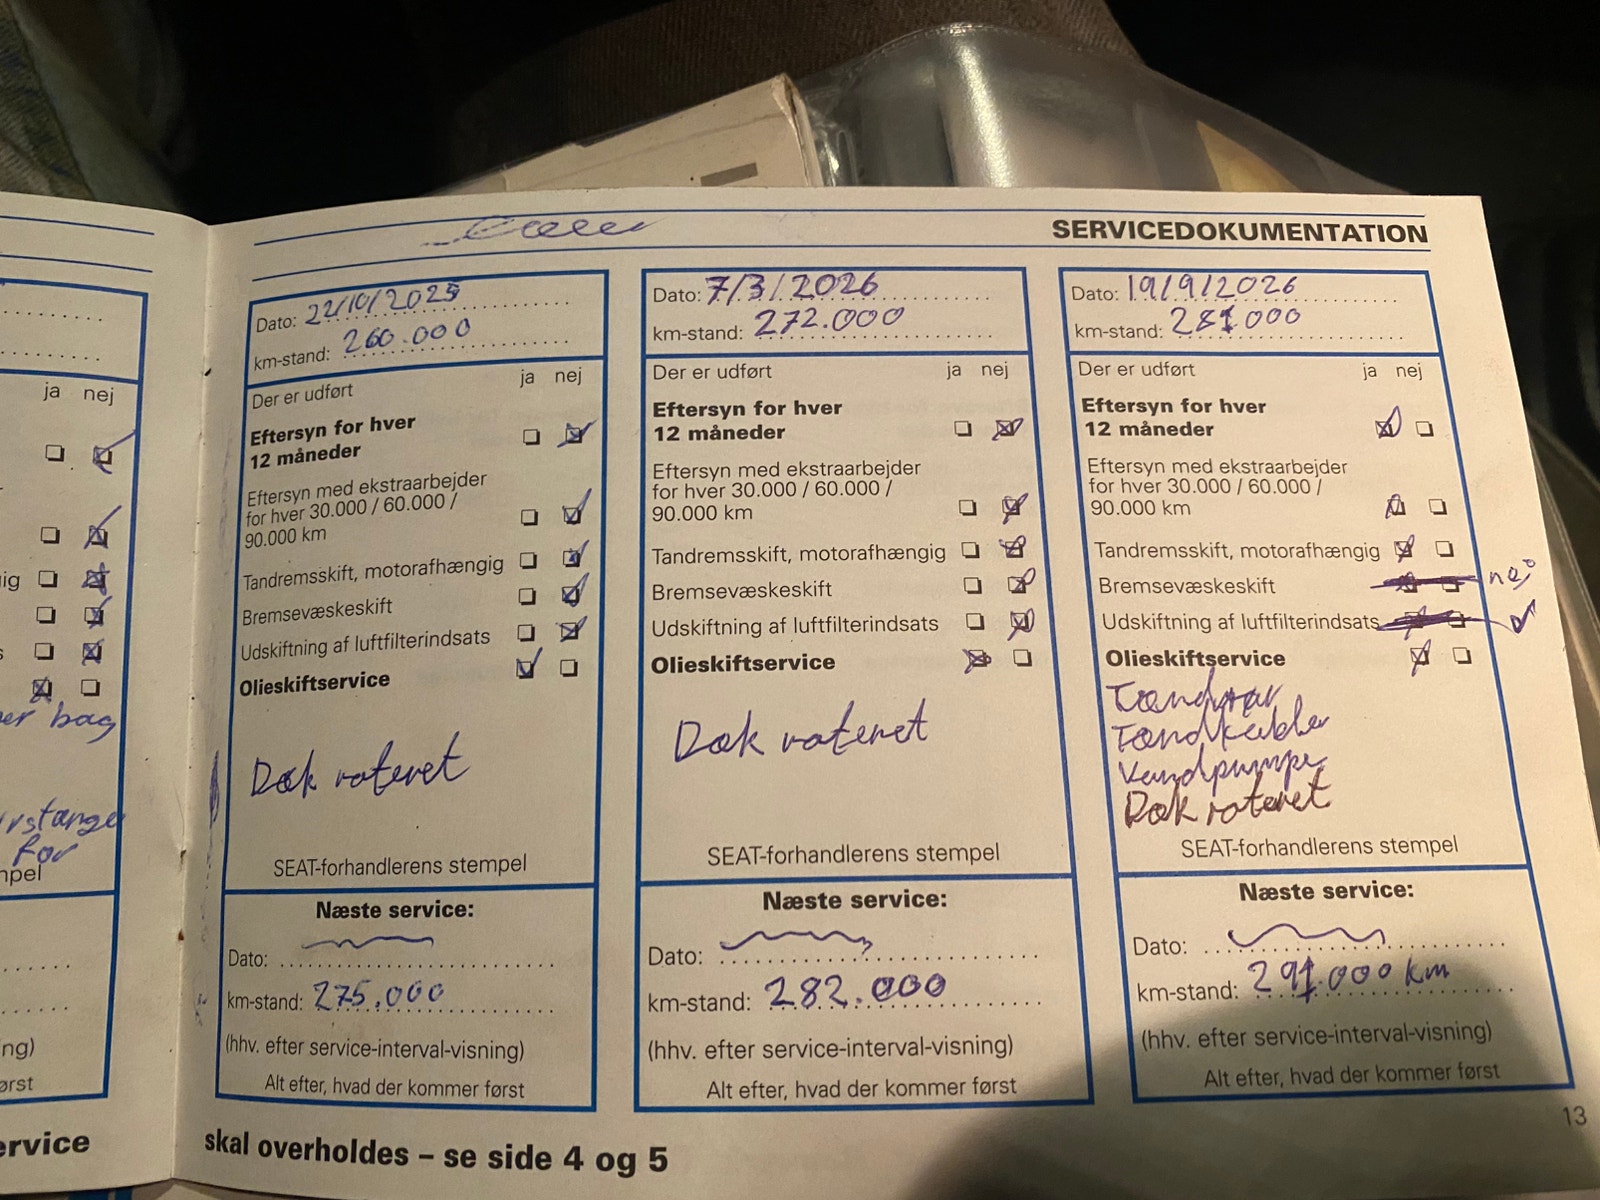 SERVICEDOKUMENTATION
ja nej
ig
s
er bag
rstænge
for
mpel
ng)
ørst
ervice
Dato: 22/10/2025
km-stand: 260.000
Der er udført ja nej
Eftersyn for hver
12 måneder
Eftersyn med ekstraarbejder
for hver 30.000 / 60.000 /
90.000 km
Tandremsskift, motorafhængig
Bremsevæskeskift
Udskiftning af luftfilterindsats
Olieskiftservice
Dæk roteret
SEAT-forhandlerens stempel
Næste service:
Dato:
km-stand: 275.000
(hhv. efter service-interval-visning)
Alt efter, hvad der kommer først
Dato: 7/3/2026
km-stand: 272.000
Der er udført ja nej
Eftersyn for hver
12 måneder
Eftersyn med ekstraarbejder
for hver 30.000 / 60.000 /
90.000 km
Tandremsskift, motorafhængig
Bremsevæskeskift
Udskiftning af luftfilterindsats
Olieskiftservice
Dæk roteret
SEAT-forhandlerens stempel
Næste service:
Dato:
km-stand: 282.000
(hhv. efter service-interval-visning)
Alt efter, hvad der kommer først
Dato: 19/9/2026
km-stand: 281000
Der er udført ja nej
Eftersyn for hver
12 måneder
Eftersyn med ekstraarbejder
for hver 30.000 / 60.000 /
90.000 km
Tandremsskift, motorafhængig
Bremsevæskeskift nej
Udskiftning af luftfilterindsats
Olieskiftservice
Tændrør
Tændkabler
Vandpumpe
Dæk roteret
SEAT-forhandlerens stempel
Næste service:
Dato:
km-stand: 291.000 km
(hhv. efter service-interval-visning)
Alt efter, hvad der kommer først
13
skal overholdes – se side 4 og 5